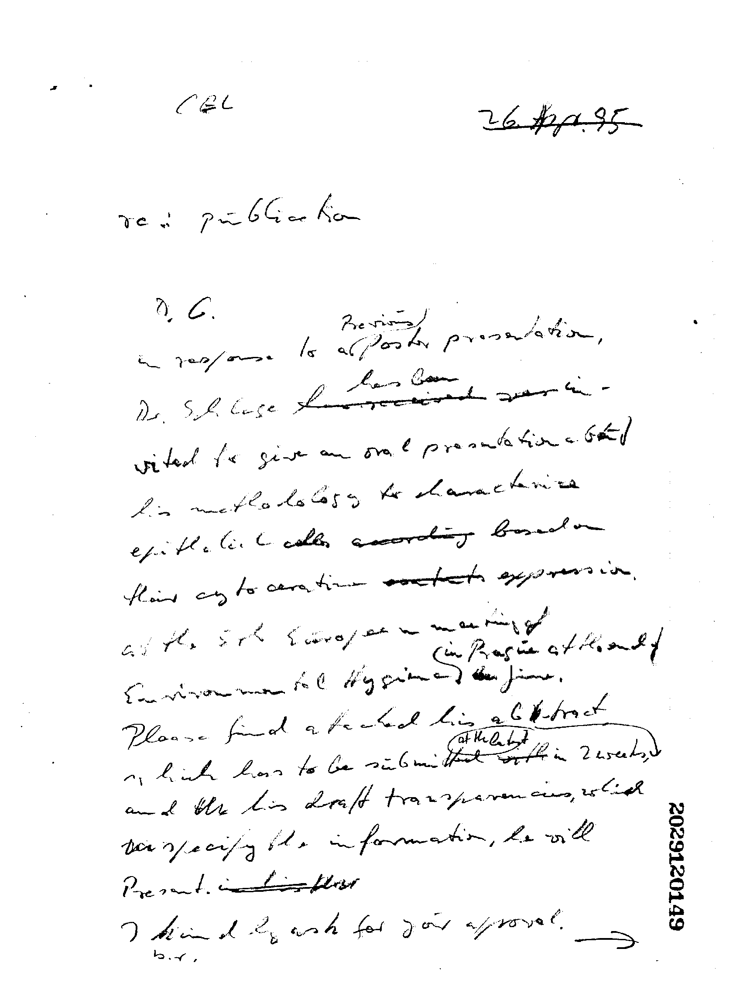 CBL
26. Apr. 95
re.: publication
D. C.
in response to a previous poster presentation,
Dr. Schlage has been in-
vited to give an oral presentation about
his methodology to characterize
epithelial cells according based on
their cytoceratine contents expression.
at the 5th European meeting of
Environmental Hygiene (in Prague at the end of June.
Please find attached his abstract
which has to be submitted within 2 weeks, at the latest
and the his draft transparencies, which
specify the information, he will
Present. in his
I kindly ask for your aproval.
b.r.
2029120149